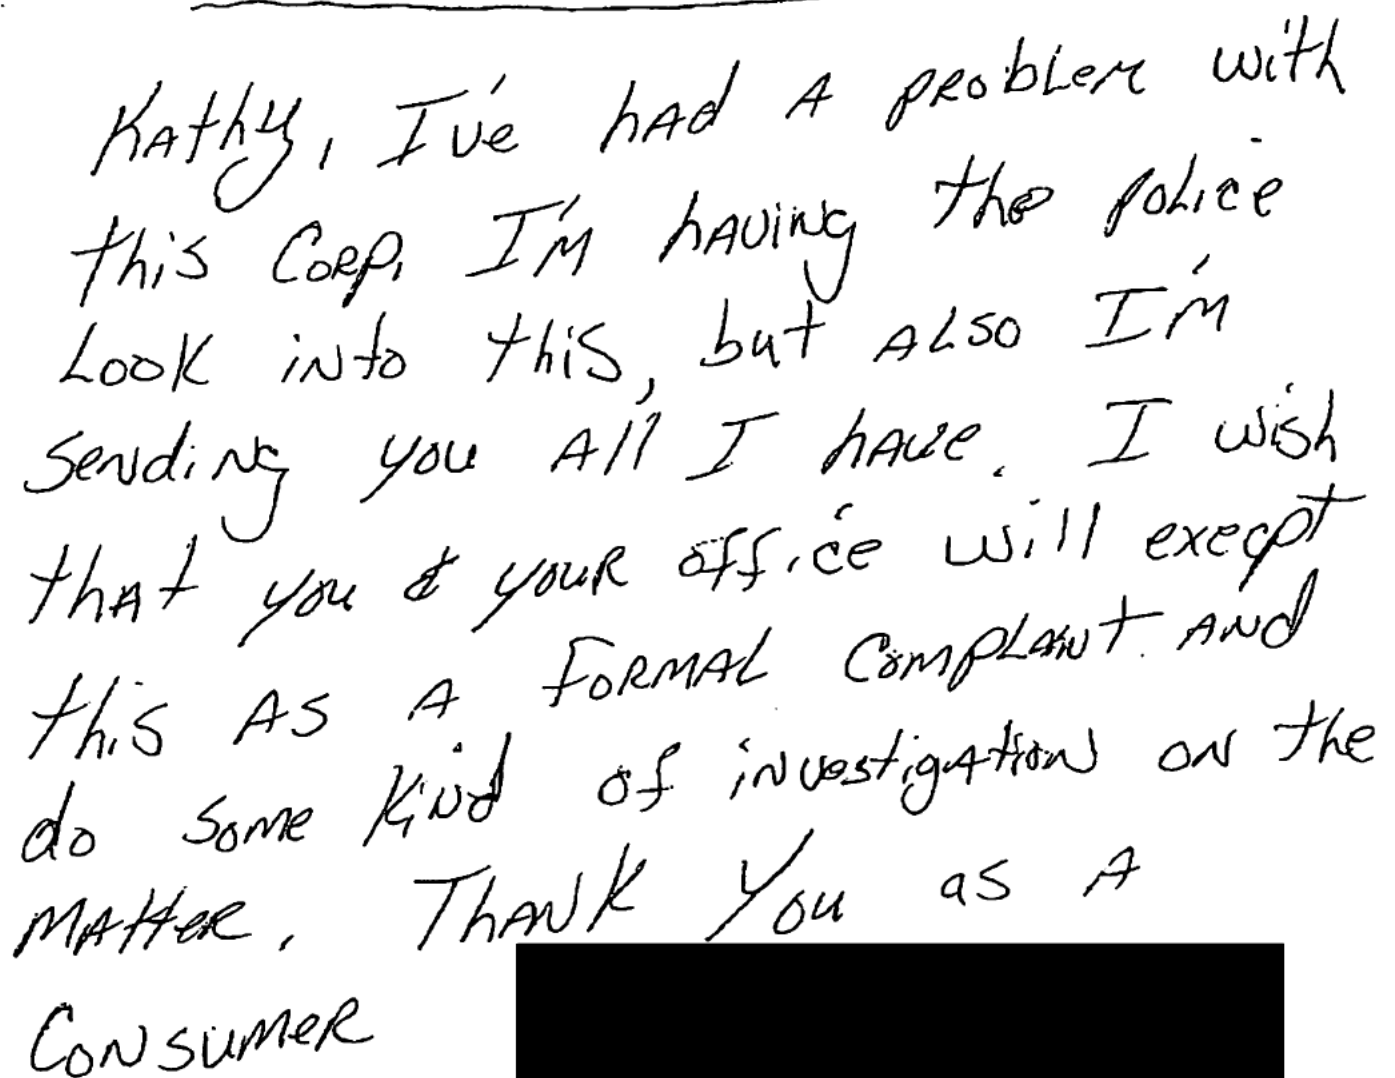 Kathy, I've had A problem with
this Corp. I'm having the police
Look into this, but also I'm
Sending you All I have. I wish
that you & your office will execpt
this As A Formal Complaint. And
do some kind of investigation on the
Matter. Thank You as A
Consumer